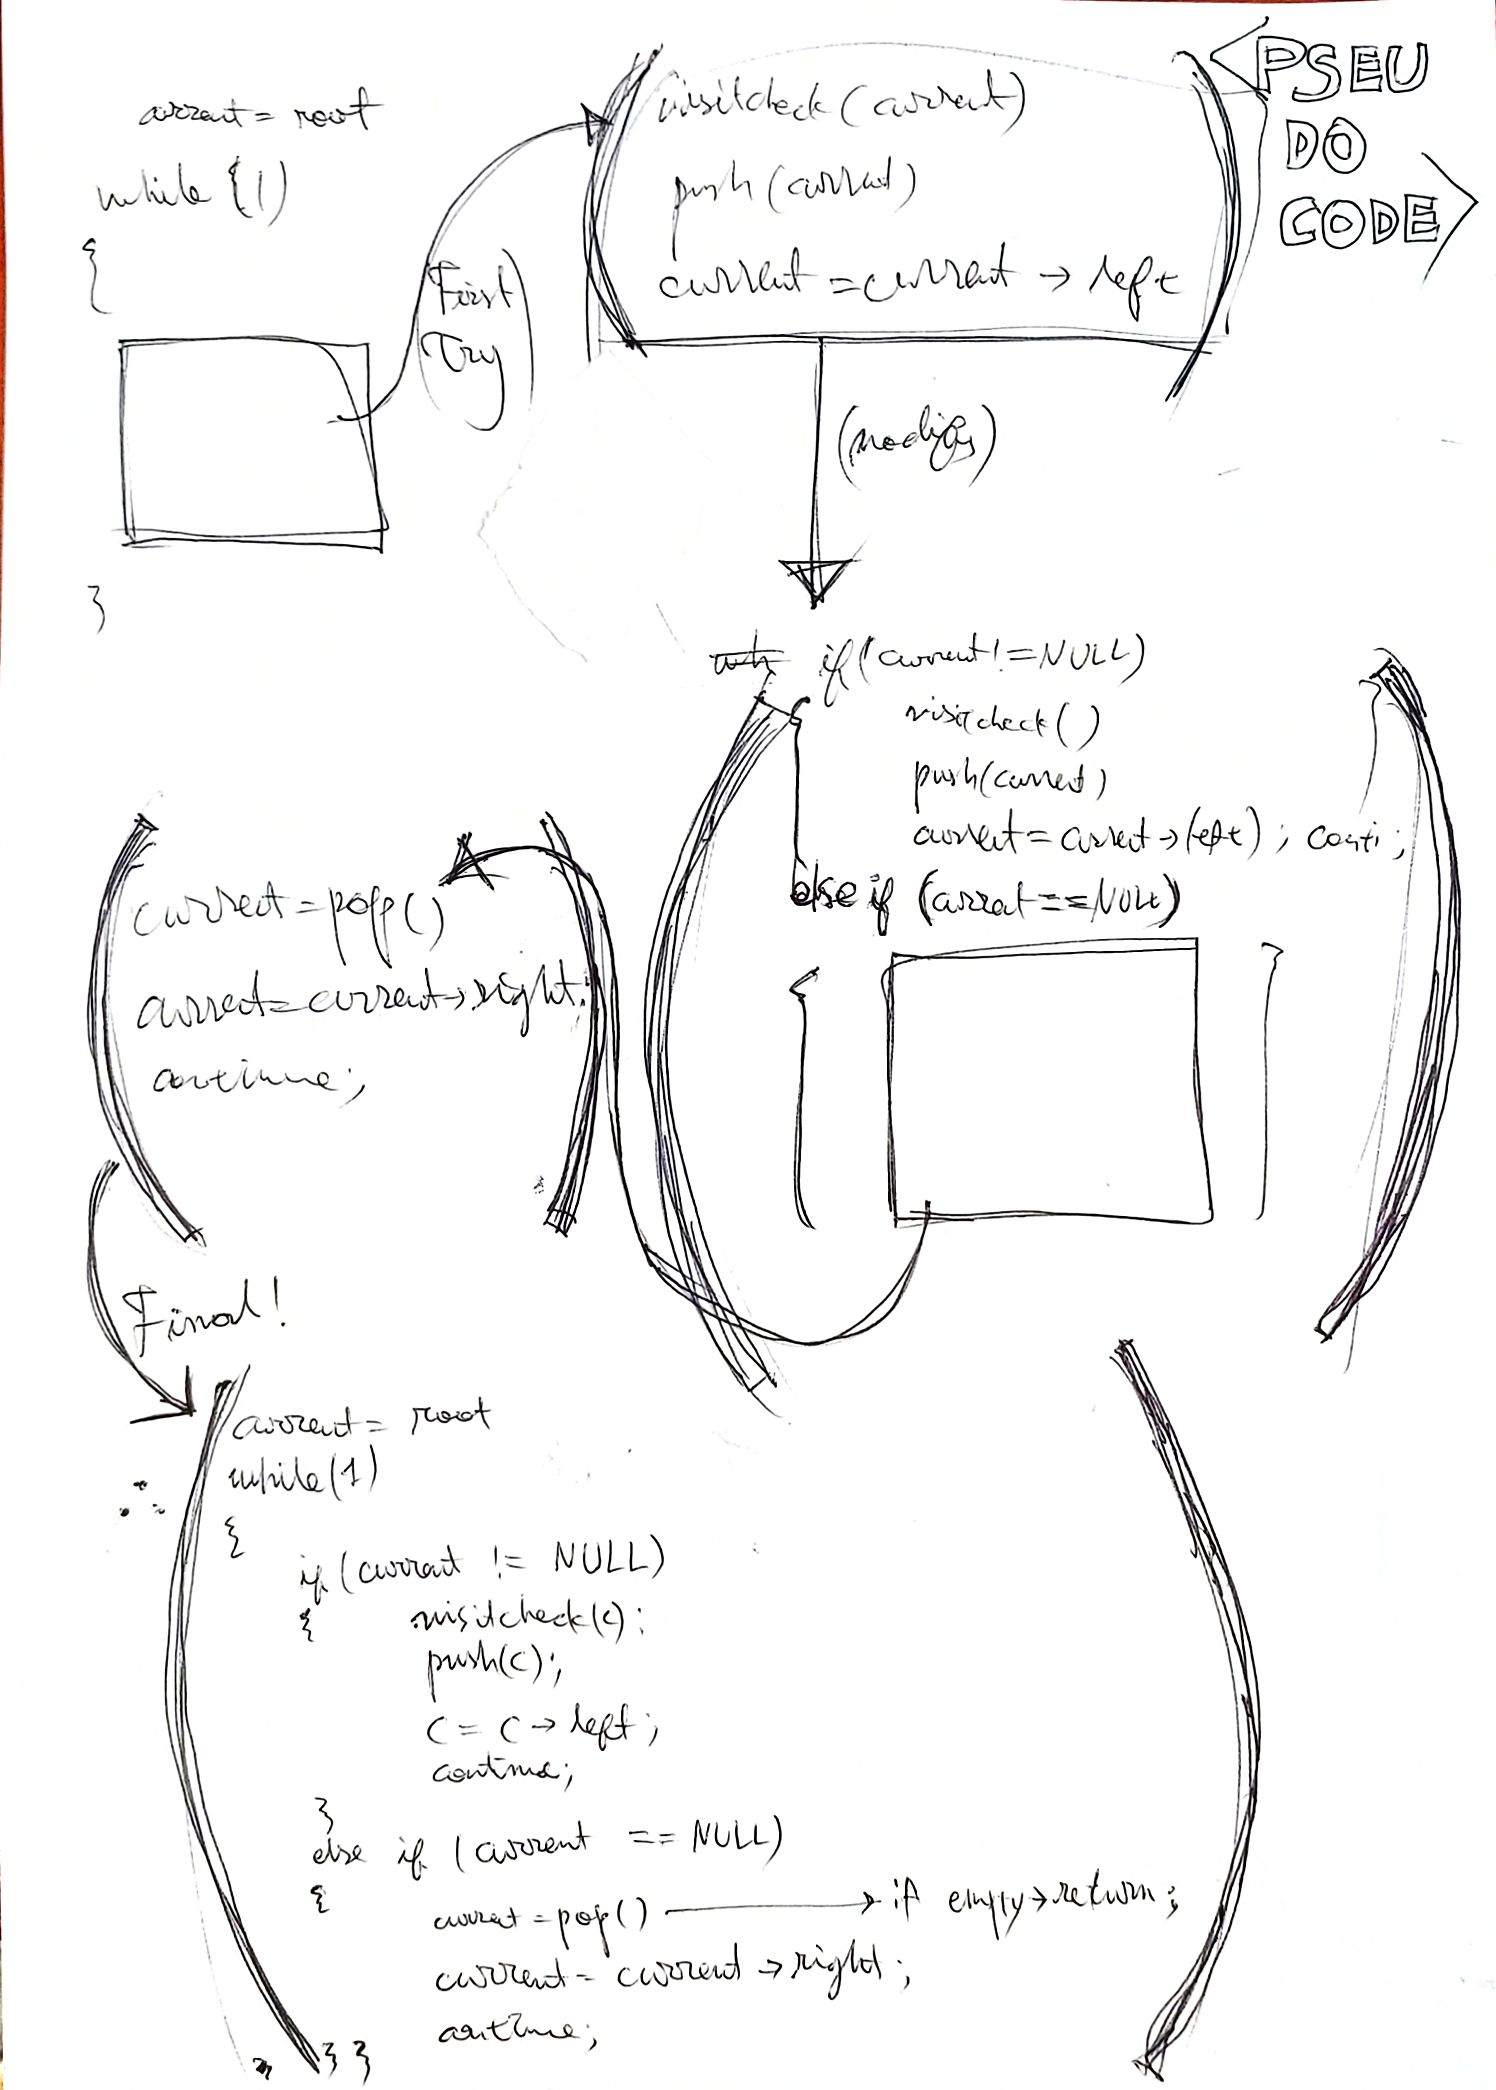 <PSEU
DO
CODE>
current = root
while {1)
{
}
(First
Try)
visitcheck(current)
push(current)
current = current → left
(modify)
if(current != NULL)
{
visitcheck()
push(current)
current = current → left); conti;
}
else if (current == NULL)
{
}
current = pop()
current = current → right;
continue;
Final!
current = root
while(1)
{
if(current != NULL)
{ visitcheck(c);
push(c);
c = c → left;
continue;
}
else if (current == NULL)
{
current = pop() → if empty → return;
current = current → right;
continue;
} }